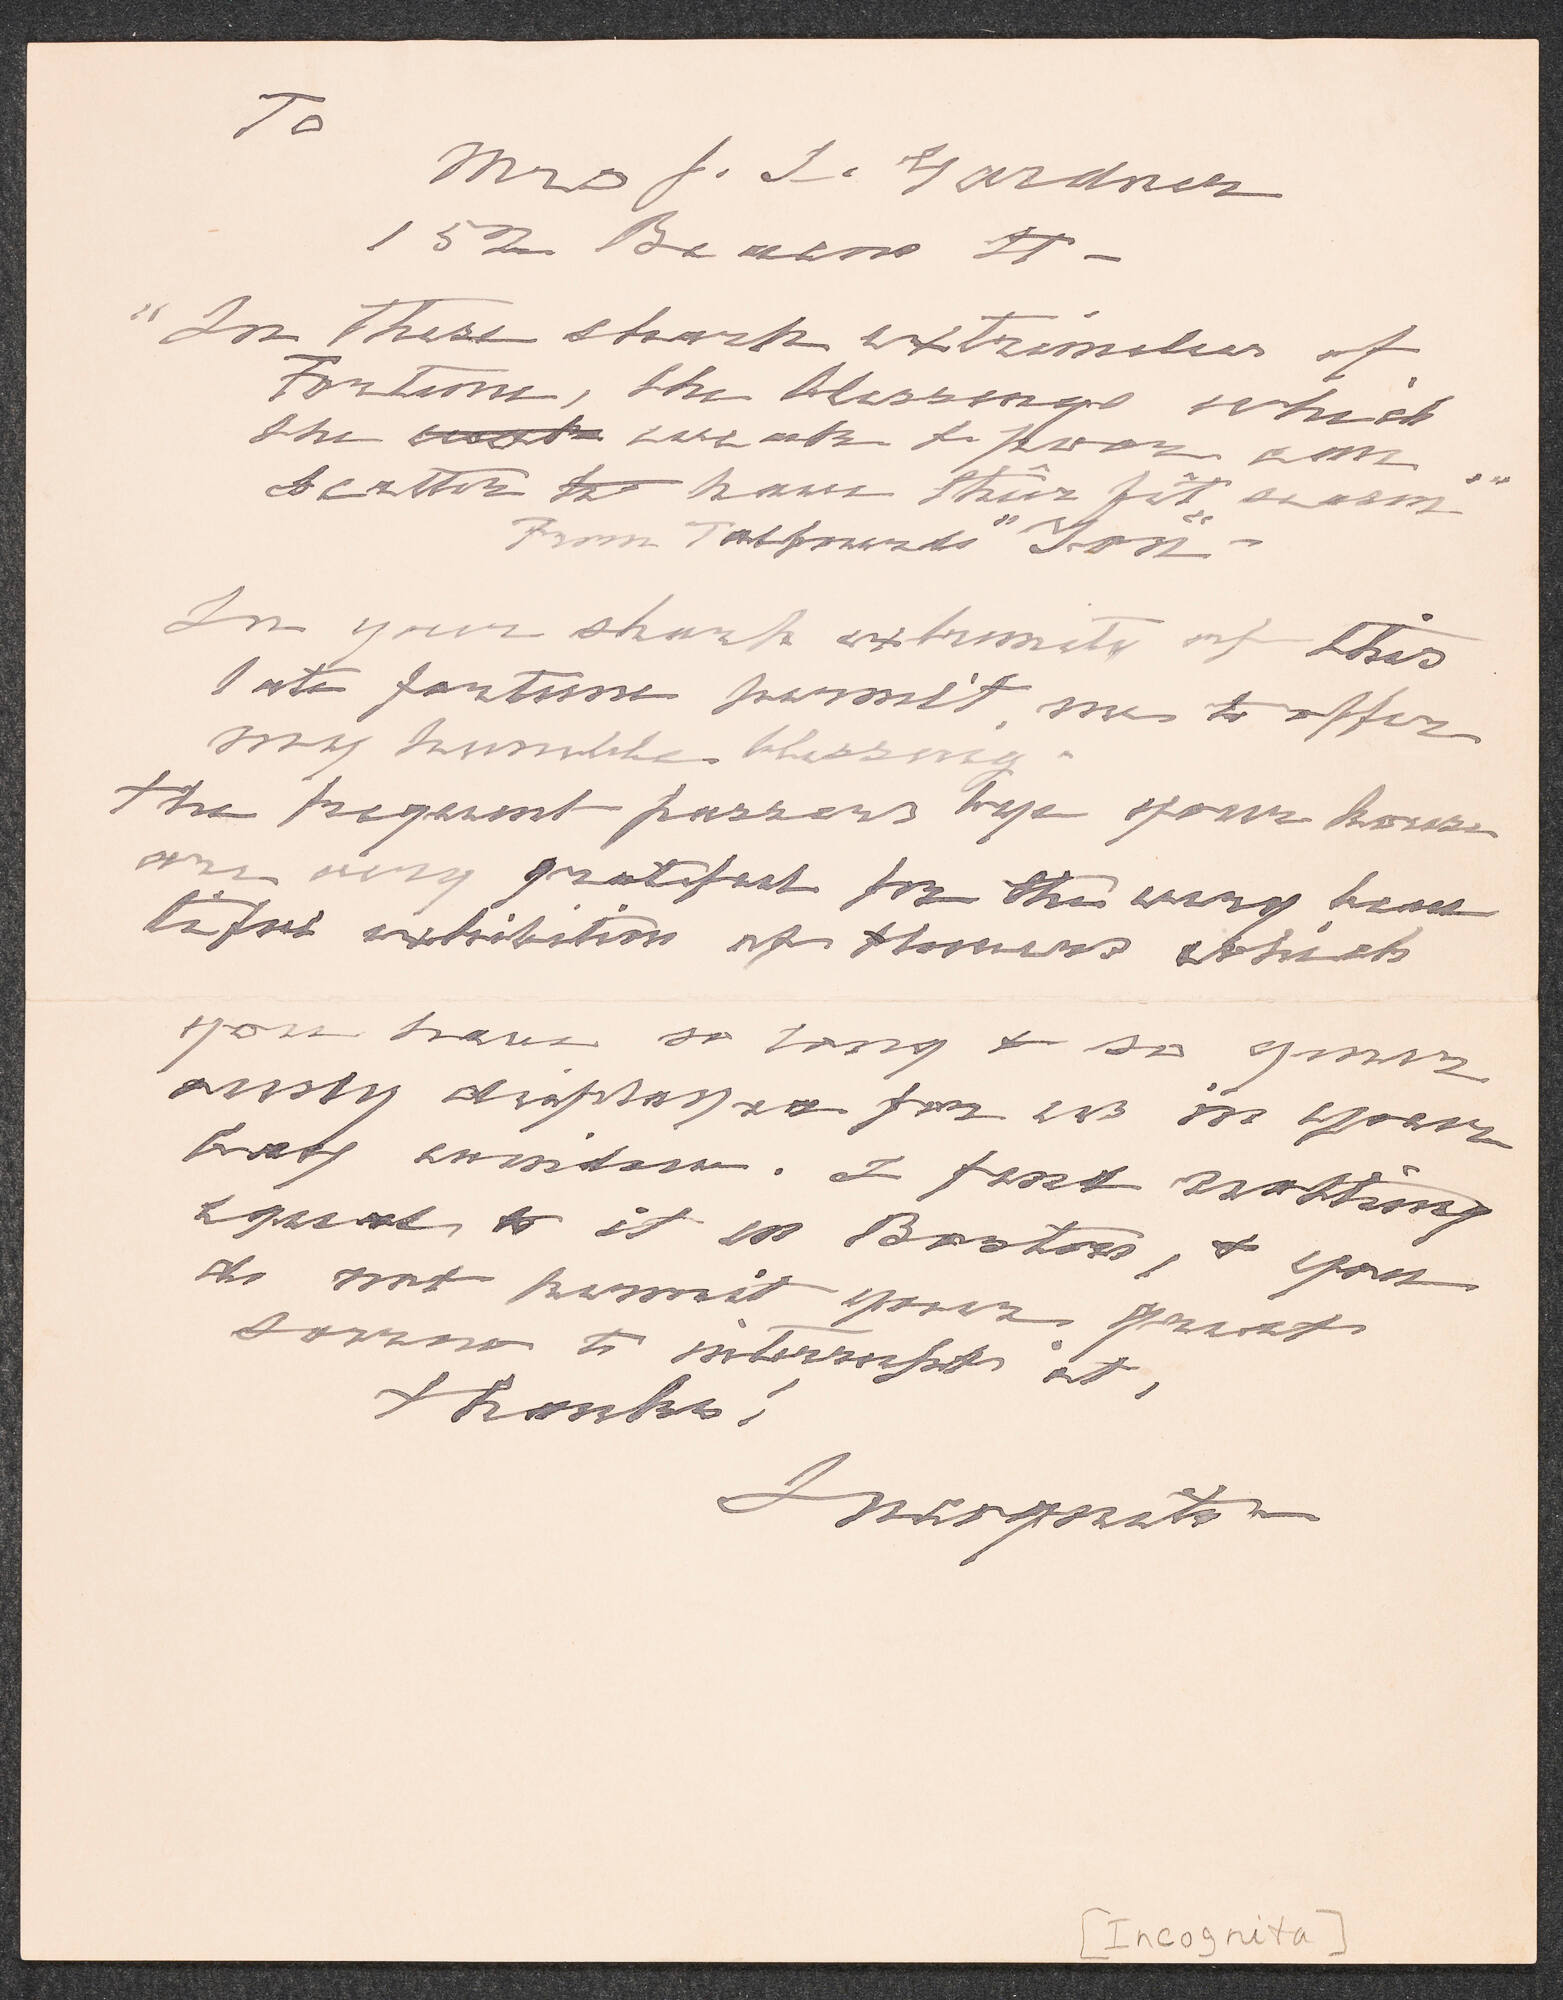 To
Mrs J. L. Gardner
152 Beacon St -
"In these sharp extremities of
Fortune, the blessings which
the weak weak & poor can
scatter have their own season""
From Talfourds "Ion" -
In your sharp extremity of this
late fortune permit me to offer
my humble blessing.
The frequent passers bye your house
are very gratefull for the very beau
tiful exhibition of flowers which
you have so long & so gener
ously displayed for us in your
bay window. I find nothing
equal to it in Boston, & you
do not permit your great
sorrow to interrupt it,
thanks!
Incognita
[Incognita]